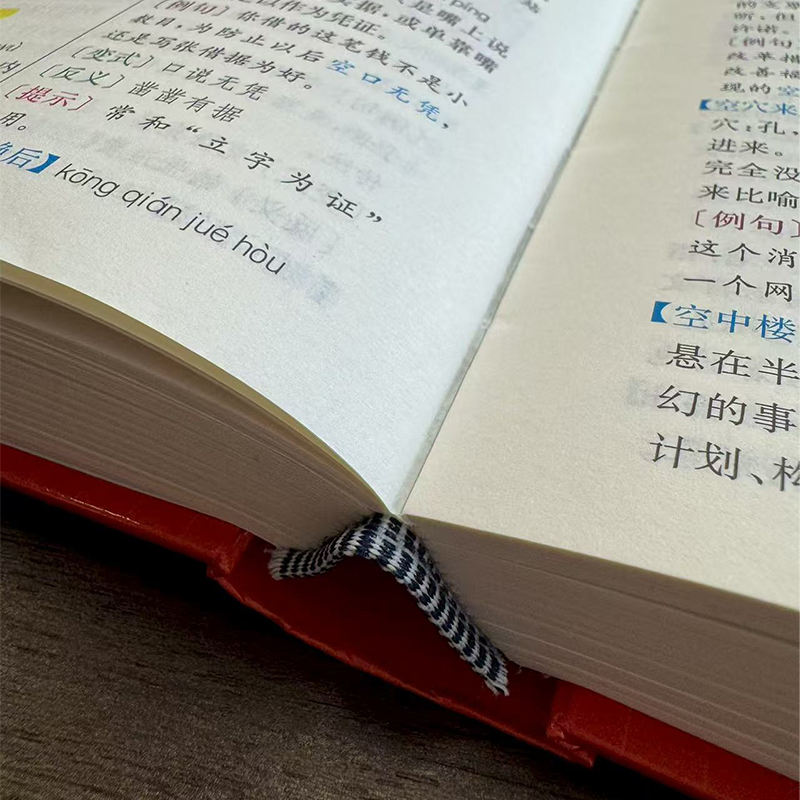 píng
是嘴上说
据，或单靠嘴
以作为凭证。
［例句］你借的这笔钱不是小
数目，为防止以后空口无凭，
还是写张借据为好。
［变式］口说无凭
［反义］凿凿有据
［提示］常和“立字为证”
用。
后】kōng qián jué hòu
内
断，但
许诺。
［例句
改革措
改善福
现的空
【空穴来
穴：孔，
进来。
完全没
来比喻
［例句］
这个消
一个网
【空中楼
悬在半
幻的事
计划、构